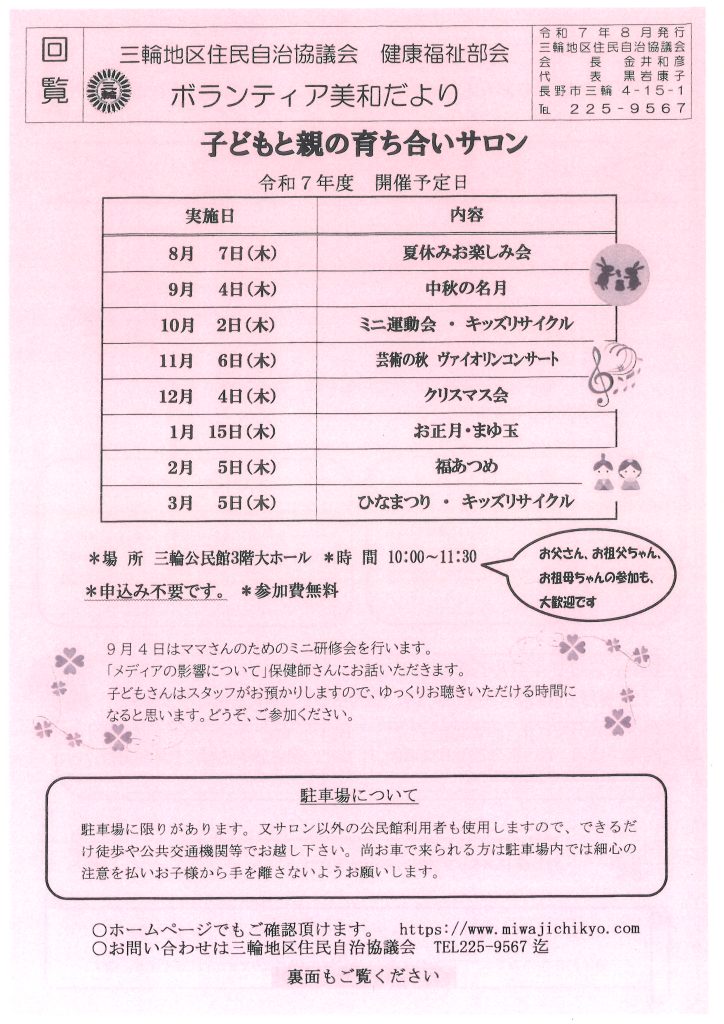 回覧
三輪地区住民自治協議会 健康福祉部会
三輪
ボランティア美和だより
令和7年8月発行
三輪地区住民自治協議会
会 長 金井和彦
代 表 黒岩康子
長野市三輪 4-15-1
℡ 225-9567
子どもと親の育ち合いサロン
令和7年度 開催予定日
実施日 内容
8月 7日(木) 夏休みお楽しみ会
9月 4日(木) 中秋の名月
10月 2日(木) ミニ運動会 ・ キッズリサイクル
11月 6日(木) 芸術の秋 ヴァイオリンコンサート
12月 4日(木) クリスマス会
1月 15日(木) お正月・まゆ玉
2月 5日(木) 福あつめ
3月 5日(木) ひなまつり ・ キッズリサイクル
*場 所 三輪公民館3階大ホール *時 間 10:00~11:30
*申込み不要です。 *参加費無料
お父さん、お祖父ちゃん、
お祖母ちゃんの参加も、
大歓迎です
9月4日はママさんのためのミニ研修会を行います。
「メディアの影響について」保健師さんにお話いただきます。
子どもさんはスタッフがお預かりしますので、ゆっくりお聴きいただける時間に
なると思います。どうぞ、ご参加ください。
駐車場について
駐車場に限りがあります。又サロン以外の公民館利用者も使用しますので、できるだ
け徒歩や公共交通機関等でお越し下さい。尚お車で来られる方は駐車場内では細心の
注意を払いお子様から手を離さないようお願いします。
○ホームページでもご確認頂けます。 https://www.miwajichikyo.com
○お問い合わせは三輪地区住民自治協議会 TEL225-9567 迄
裏面もご覧ください